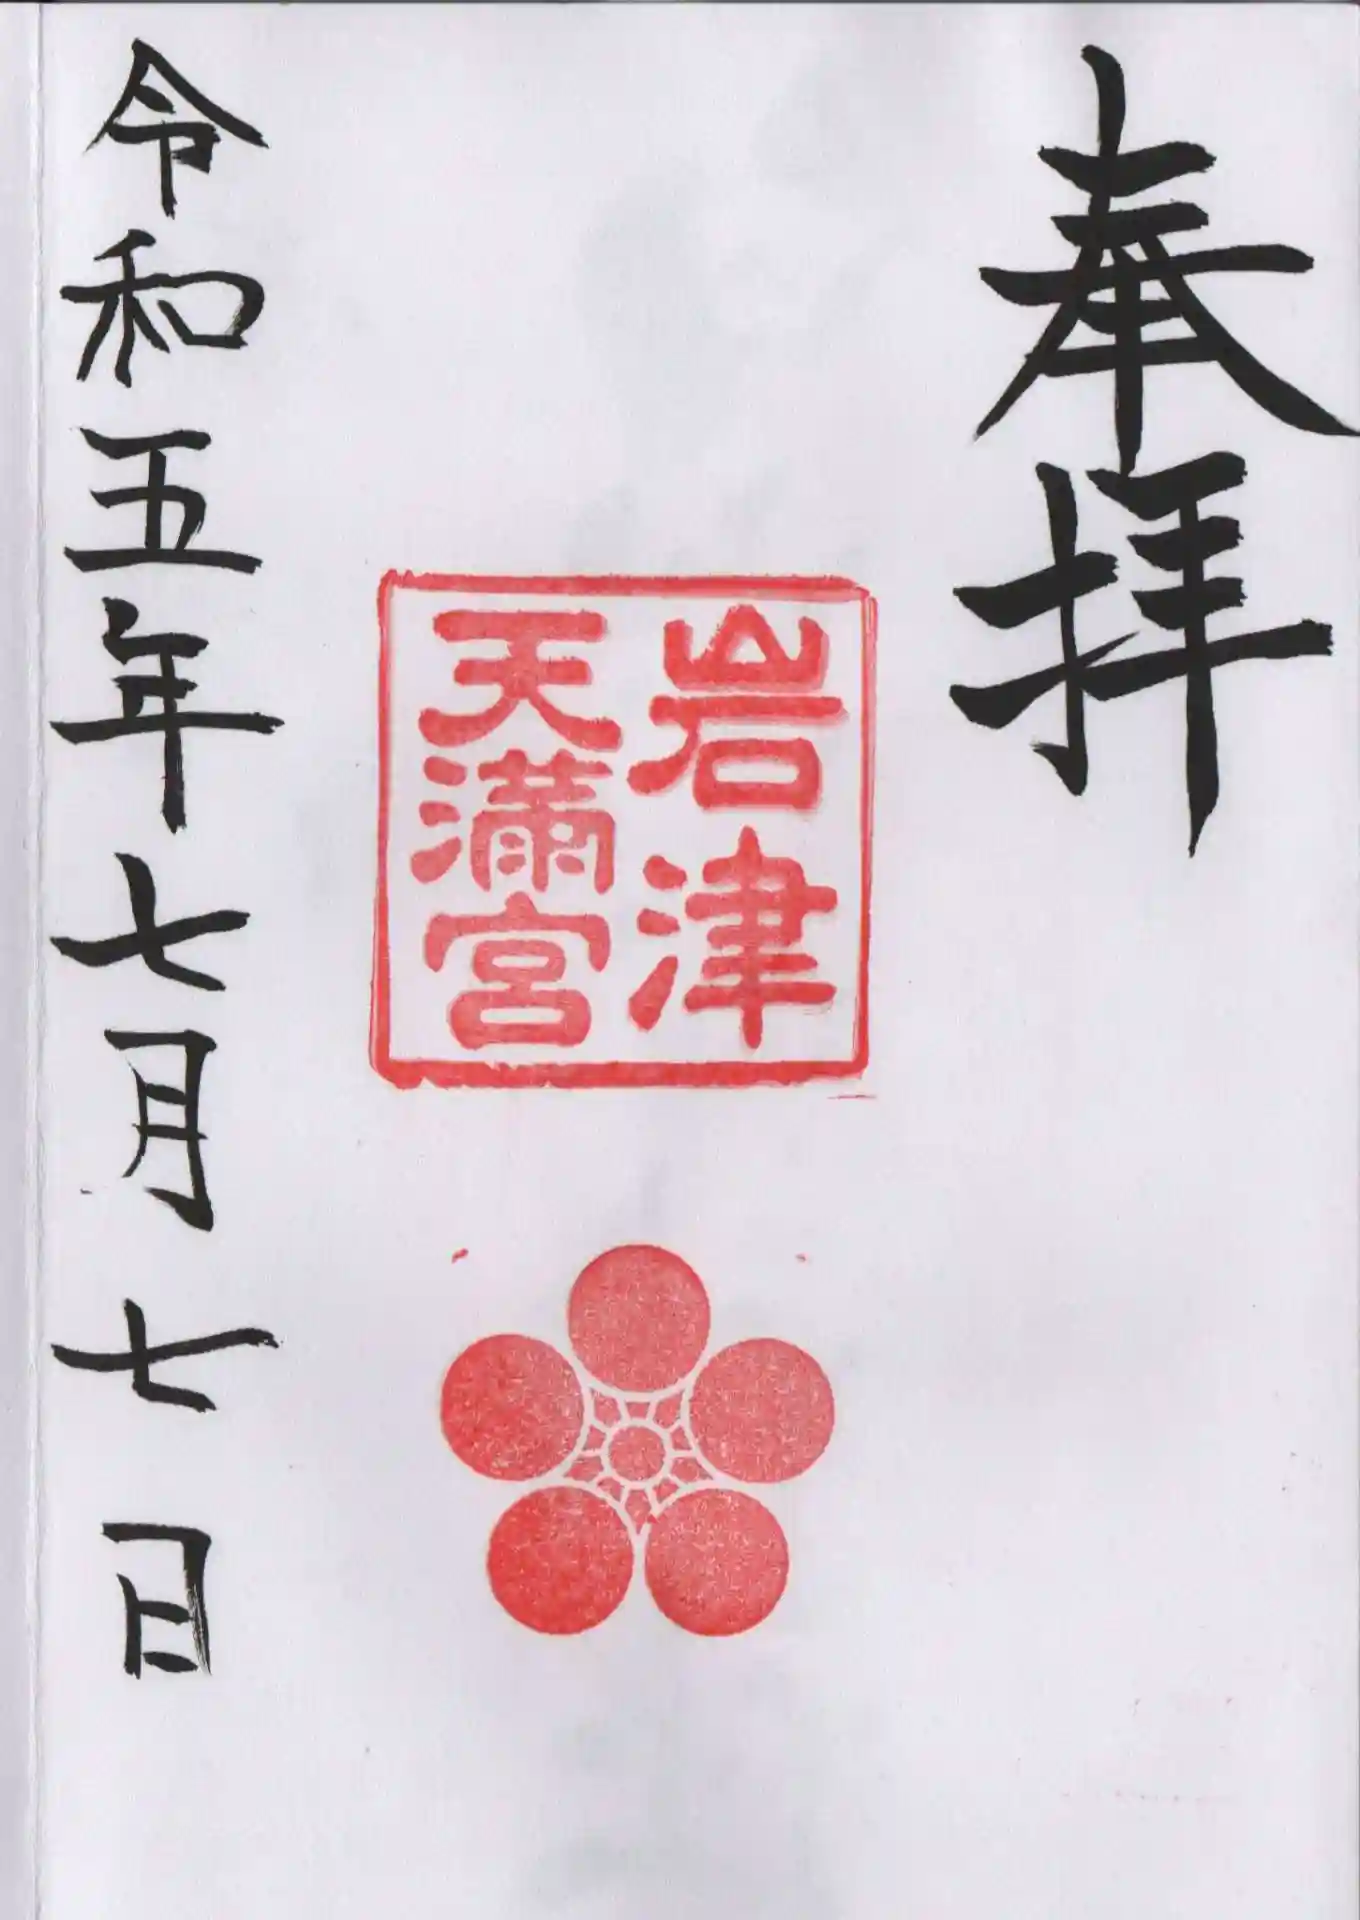 奉拝
岩津
天満宮
令和五年七月七日